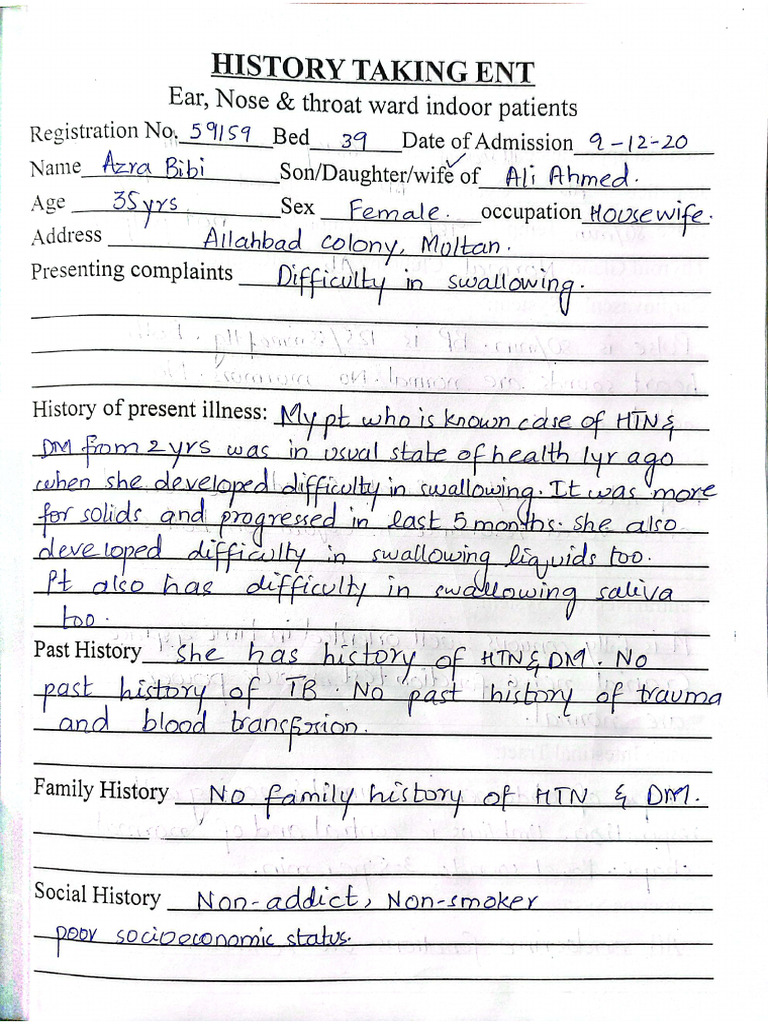 HISTORY TAKING ENT
Ear, Nose & throat ward indoor patients
Registration No. 59159 Bed 39 Date of Admission 9-12-20
Name Azra Bibi Son/Daughter/wife of ✓ Ali Ahmed.
Age 35 yrs Sex Female. occupation Housewife.
Address Allahbad colony, Multan.
Presenting complaints Difficulty in swallowing.
History of present illness: My pt who is known case of HTN &
DM from 2 yrs was in usual state of health 1yr ago
when she developed difficulty in swallowing. It was more
for solids and progressed in last 5 months. she also
developed difficulty in swallowing liquids too.
Pt also has difficulty in swallowing saliva
too.
Past History She has history of HTN & DM. No
past history of TB. No past history of trauma
and blood transfusion.
Family History No family history of HTN & DM.
Social History Non-addict, Non-smoker
poor socioeconomic status.